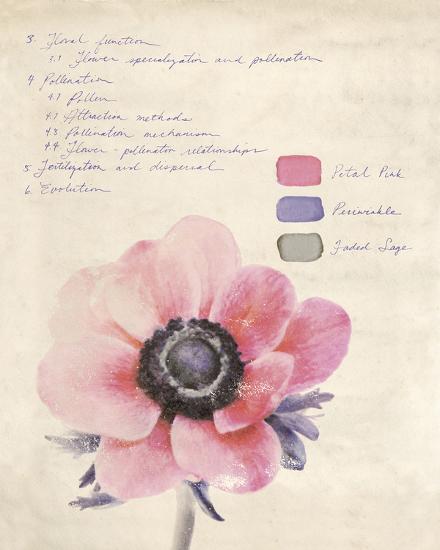 3. Floral function
3.1 Flower specialization and pollenation
4. Pollenation
4.1 Pollen
4.2 Attraction methods
4.3 Pollination mechanism
4.4 Flower - pollinator relationships
5. Fertilization and dispersal
6. Evolution
Petal Pink
Periwinkle
Faded Sage